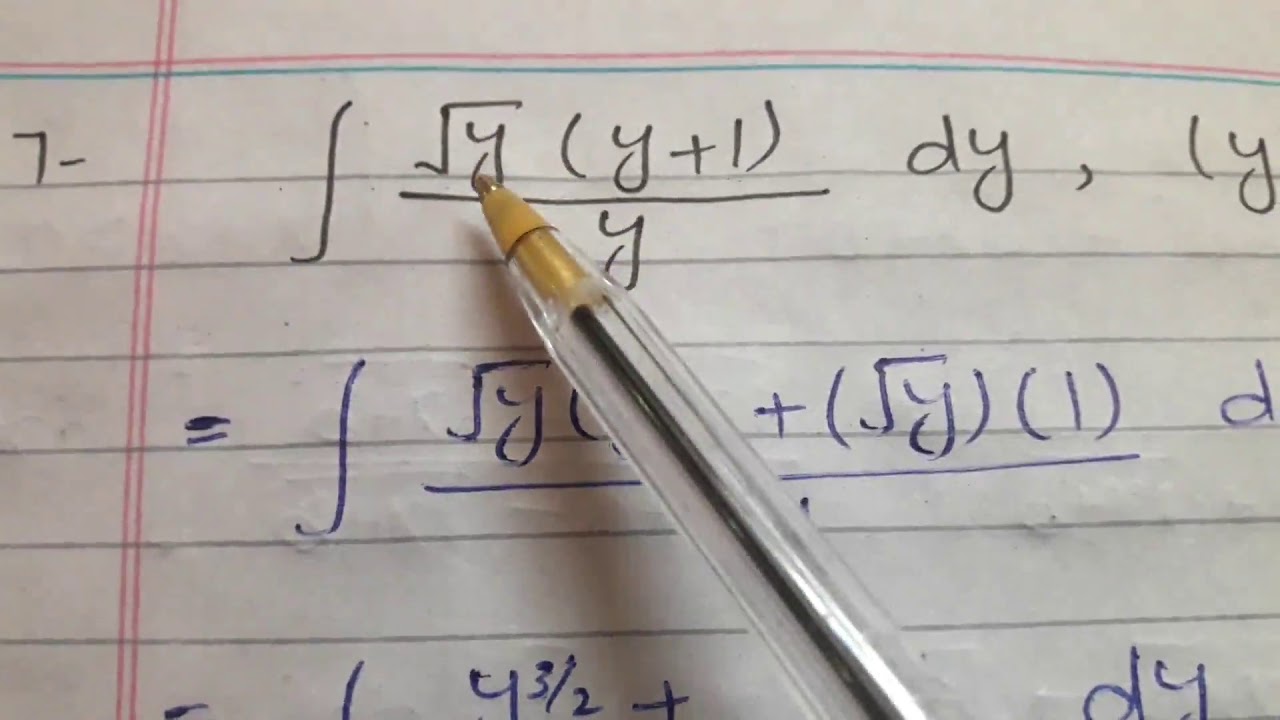 7- ∫ √y (y+1) / y dy , (y
= ∫ √y ( + (√y)(1) d
= ∫ y^3/2 + dy